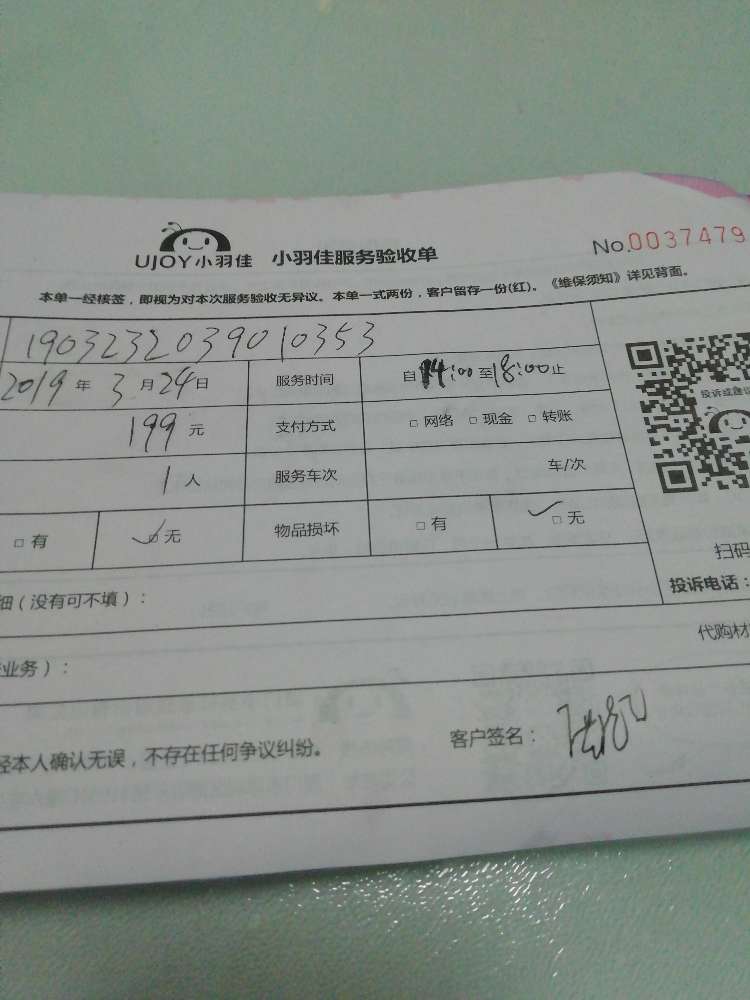 UJOY小羽佳 小羽佳服务验收单 No.0037479
本单一经核签，即视为对本次服务验收无异议。本单一式两份，客户留存一份(红)。《维保须知》详见背面。
1903232039010353
2019年3月24日 服务时间 自14:00至18:00止
199元 支付方式 □网络 □现金 □转账
投诉或建议
1人 服务车次 车/次
□有 □无 物品损坏 □有 □无
扫码
细（没有可不填）： 投诉电话：
代购材
业务）：
经本人确认无误，不存在任何争议纠纷。 客户签名：